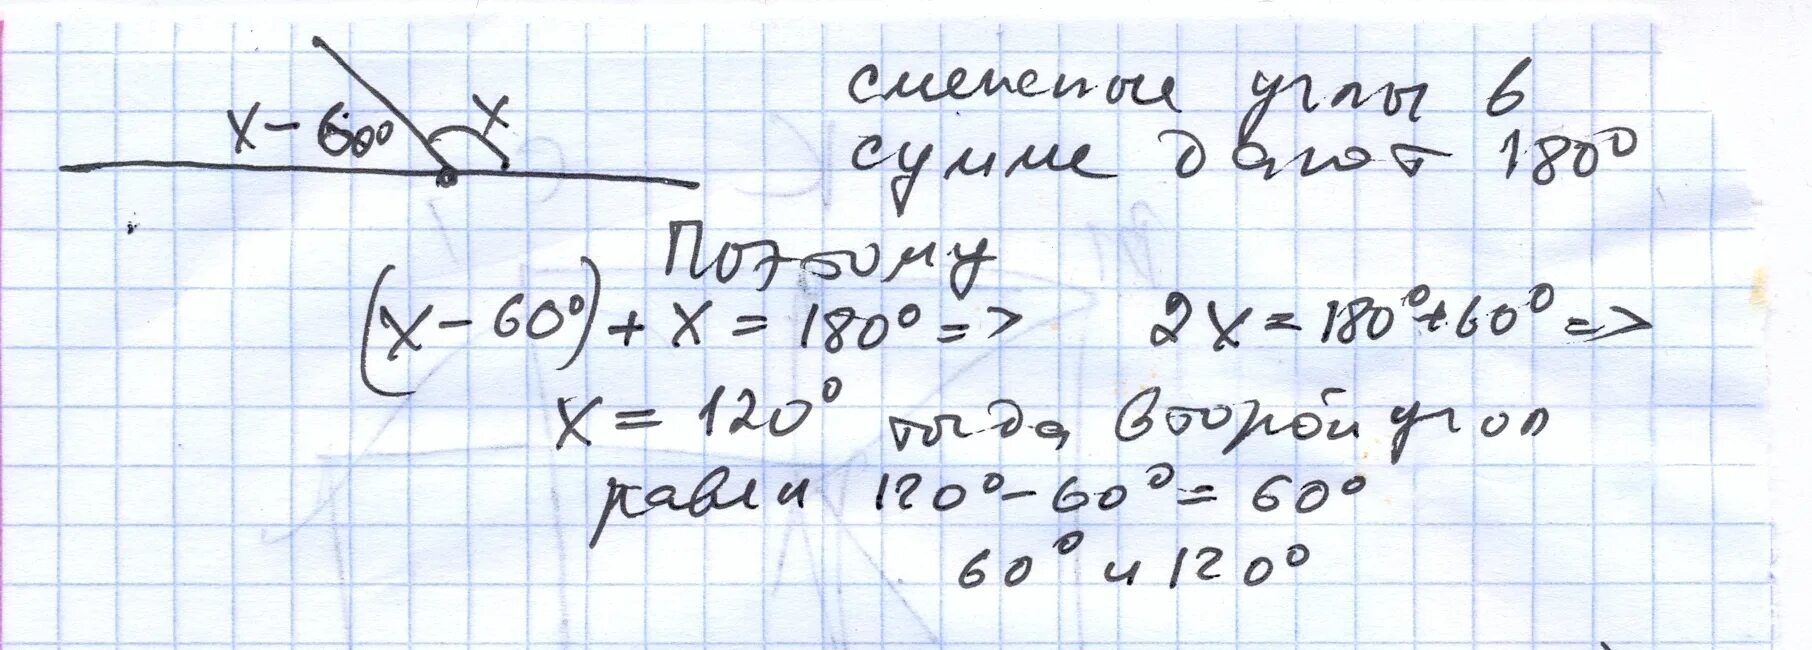 x - 60° x
смежные углы в
сумме дают 180°
Поэтому
(x - 60°) + x = 180° => 2x = 180° + 60° =>
x = 120° тогда второй угол
равен 120° - 60° = 60°
60° и 120°